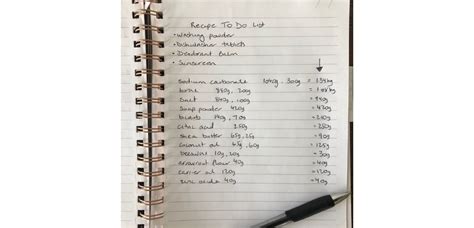 Recipe To Do List
• Washing powder
• Dishwasher tablets
• Deodorant Balm
• Sunscreen
Sodium carbonate 1040g, 300g = 1.34kg
borax 880g, 200g = 1.08kg
Salt 840g, 100g = 940g
Soap powder 420g = 420g
bicarb 140g, 70g = 210g
citric acid 250g = 250g
shea butter 65g, 25g = 90g
coconut oil 65g, 60g = 125g
beeswax 10g, 20g = 30g
arrowroot flour 40g = 40g
carrier oil 120g = 120g
zinc oxide 40g = 40g